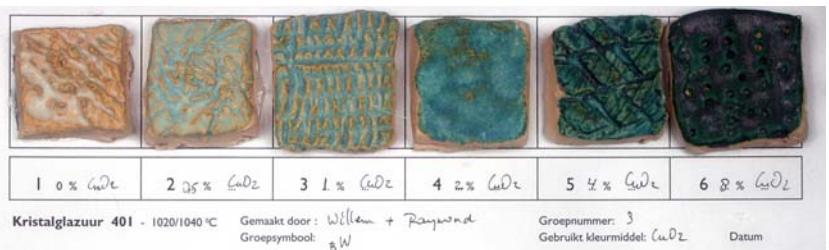 1 0 % CuO2 2 0,5 % CuO2 3 1 % CuO2 4 2 % CuO2 5 4 % CuO2 6 8 % CuO2
Kristalglazuur 401 - 1020/1040 °C Gemaakt door : Willem + Raymond Groepnummer: 3
Groepsymbool: RW Gebruikt kleurmiddel: CuO2 Datum